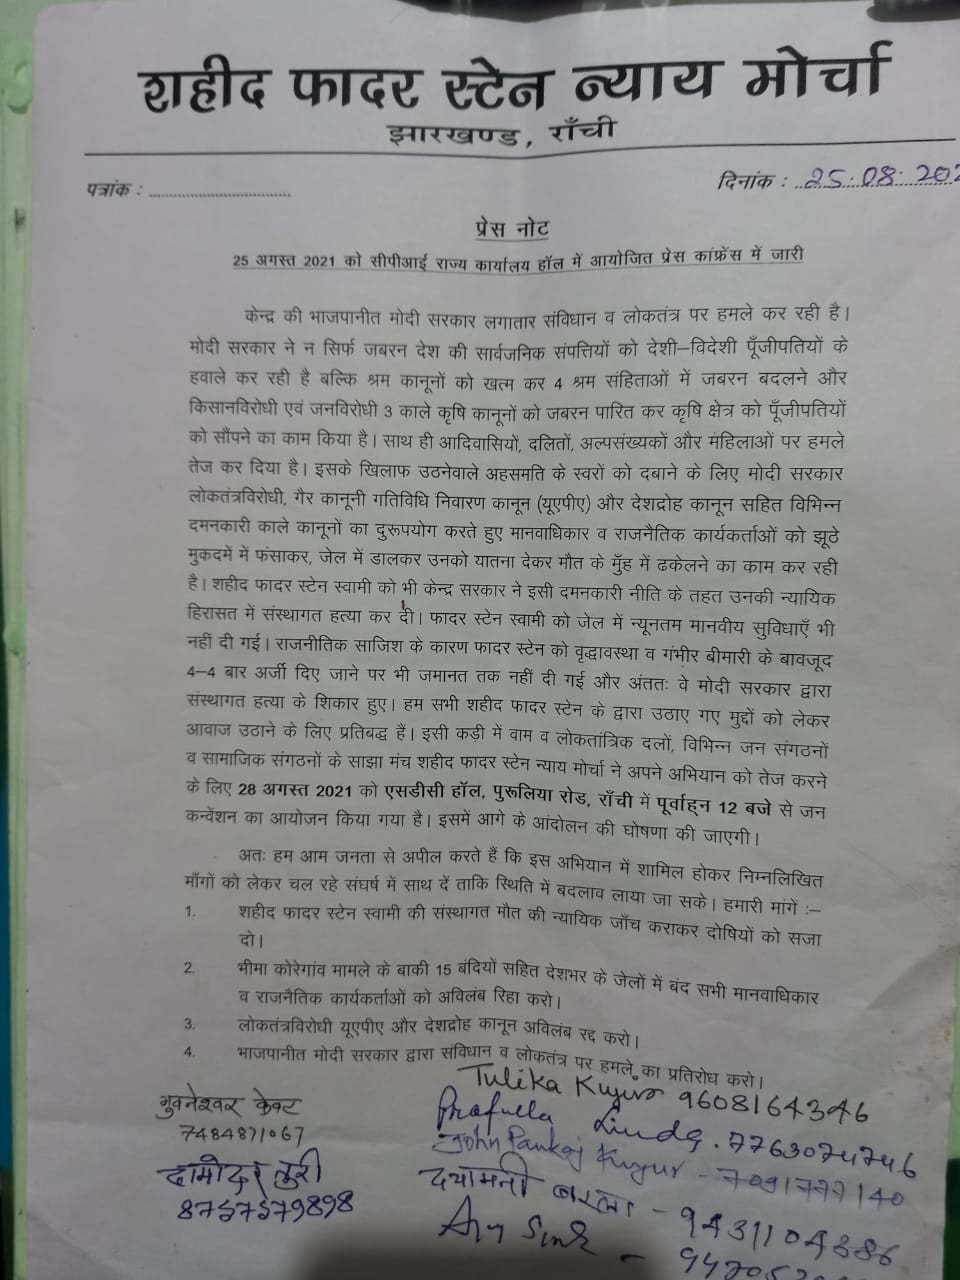 शहीद फादर स्टेन न्याय मोर्चा
झारखण्ड, राँची
पत्रांक : ................................
दिनांक : 25.08.202
प्रेस नोट
25 अगस्त 2021 को सीपीआई राज्य कार्यालय हॉल में आयोजित प्रेस कांफ्रेंस में जारी
केन्द्र की भाजपानीत मोदी सरकार लगातार संविधान व लोकतंत्र पर हमले कर रही है।
मोदी सरकार ने न सिर्फ जबरन देश की सार्वजनिक संपत्तियों को देशी–विदेशी पूँजीपतियों के
हवाले कर रही है बल्कि श्रम कानूनों को खत्म कर 4 श्रम संहिताओं में जबरन बदलने और
किसानविरोधी एवं जनविरोधी 3 काले कृषि कानूनों को जबरन पारित कर कृषि क्षेत्र को पूँजीपतियों
को सौंपने का काम किया है। साथ ही आदिवासियों, दलितों, अल्पसंख्यकों और महिलाओं पर हमले
तेज कर दिया है। इसके खिलाफ उठनेवाले अहसमति के स्वरों को दबाने के लिए मोदी सरकार
लोकतंत्रविरोधी, गैर कानूनी गतिविधि निवारण कानून (यूएपीए) और देशद्रोह कानून सहित विभिन्न
दमनकारी काले कानूनों का दुरूपयोग करते हुए मानवाधिकार व राजनैतिक कार्यकर्ताओं को झूठे
मुकदमें में फंसाकर, जेल में डालकर उनको यातना देकर मौत के मुँह में ढकेलने का काम कर रही
है। शहीद फादर स्टेन स्वामी को भी केन्द्र सरकार ने इसी दमनकारी नीति के तहत उनकी न्यायिक
हिरासत में संस्थागत हत्या कर दी। फादर स्टेन स्वामी को जेल में न्यूनतम मानवीय सुविधाएँ भी
नहीं दी गई। राजनीतिक साजिश के कारण फादर स्टेन को वृद्धावस्था व गंभीर बीमारी के बावजूद
4–4 बार अर्जी दिए जाने पर भी जमानत तक नहीं दी गई और अंततः वे मोदी सरकार द्वारा
संस्थागत हत्या के शिकार हुए। हम सभी शहीद फादर स्टेन के द्वारा उठाए गए मुद्दों को लेकर
आवाज उठाने के लिए प्रतिबद्ध हैं। इसी कड़ी में वाम व लोकतांत्रिक दलों, विभिन्न जन संगठनों
व सामाजिक संगठनों के साझा मंच शहीद फादर स्टेन न्याय मोर्चा ने अपने अभियान को तेज करने
के लिए 28 अगस्त 2021 को एसडीसी हॉल, पुरूलिया रोड, राँची में पूर्वाह्न 12 बजे से जन
कन्वेंशन का आयोजन किया गया है। इसमें आगे के आंदोलन की घोषणा की जाएगी।
अतः हम आम जनता से अपील करते हैं कि इस अभियान में शामिल होकर निम्नलिखित
माँगों को लेकर चल रहे संघर्ष में साथ दें ताकि स्थिति में बदलाव लाया जा सके। हमारी मांगें :–
1. शहीद फादर स्टेन स्वामी की संस्थागत मौत की न्यायिक जाँच कराकर दोषियों को सजा
दो।
2. भीमा कोरेगांव मामले के बाकी 15 बंदियों सहित देशभर के जेलों में बंद सभी मानवाधिकार
व राजनैतिक कार्यकर्ताओं को अविलंब रिहा करो।
3. लोकतंत्रविरोधी यूएपीए और देशद्रोह कानून अविलंब रद्द करो।
4. भाजपानीत मोदी सरकार द्वारा संविधान व लोकतंत्र पर हमले का प्रतिरोध करो।
Tulika Kujur 9608164346
भुवनेश्वर केवट
7484871067
Prafulla Linda. 7763074746
John Pankaj Kujur - 7091777140
दामोदर तुरी
8757579898
दयामनी बरला - 9431104386